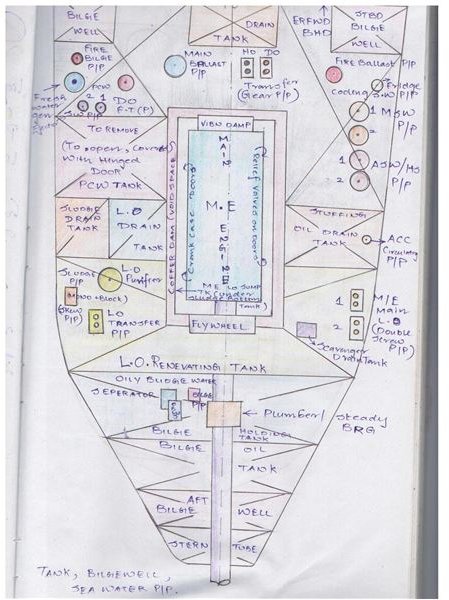 BILGIE
WELL
DRAIN
TANK
ERFWD
BHD
STBD
BILGIE
WELL
FIRE
BILGIE
P/P
MAIN
BALLAST
P/P
HO DO
Transfer
(Gear P/P)
Fire Ballast P/P
Fridge
Cooling S.W P/P
Fresh
water
gen
PCW
2 1
S.W P/P
D.O
F.T (P)
1 MSW
P/P
2
1 ASW/HS
P/P
2
TO REMOVE
(To open, Covered
With Hinged
DOOR
PCW TANK
COFFER DAM (VOID SPACE)
VIBN DAMP
MAIN
M.E
ENGINE
(Crank Case Doors)
(Relief Valves on Doors)
ME LO SUMP
TK (Under
Sludge Bottom
Tank)
FLYWHEEL
SLUDGE
DRAIN
TANK
L.O
DRAIN
TANK
STUFFING
OIL DRAIN
TANK
ACC
Circulating
P/P
SLUDGE
P/P
(MONO-Block)
(Screw
P/P)
L.O
Purifier
LO
TRANSFER
P/P
1
2
M/E
Main
L.O
(Double
Screw
P/P)
Scavanger
Drain Tank
L.O. RENOVATING TANK
OILY BILDGE WATER
SEPERATOR
BILGE
P/P
Plumber/
Steady
BRG
BILGIE
HOLDING
TANK
BILGIE OIL
TANK
AFT
BILGIE WELL
STERN TUBE
TANK, BILGIEWELL,
SEA WATER P/P.